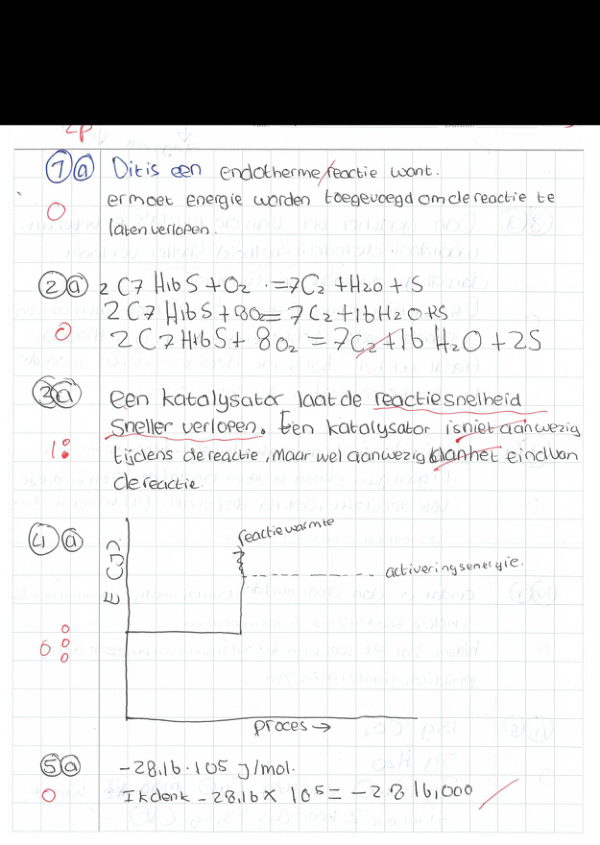 2p
1a Dit is een endotherme reactie want.
0 er moet energie worden toegevoegd om de reactie te
laten verlopen.
2a 2 C7 H16 S + O2 = 7C2 + H20 + 1S
2 C7 H16 S + 8O2 = 7 C2 + 16 H2 O + 2S
0 2 C7 H16 S + 8 O2 = 7C2 + 16 H2O + 2S
3a Een katalysator laat de reactiesnelheid
sneller verlopen. Een katalysator is niet aanwezig
1 tijdens de reactie, maar wel aanwezig aan het eind van
de reactie.
4a reactiewarmte
E (J).
activeringsenergie.
0 0 0 0
proces →
5a -28,16 · 10⁵ J/mol.
0 Ik denk -28,16 x 10⁵ = -2816,000